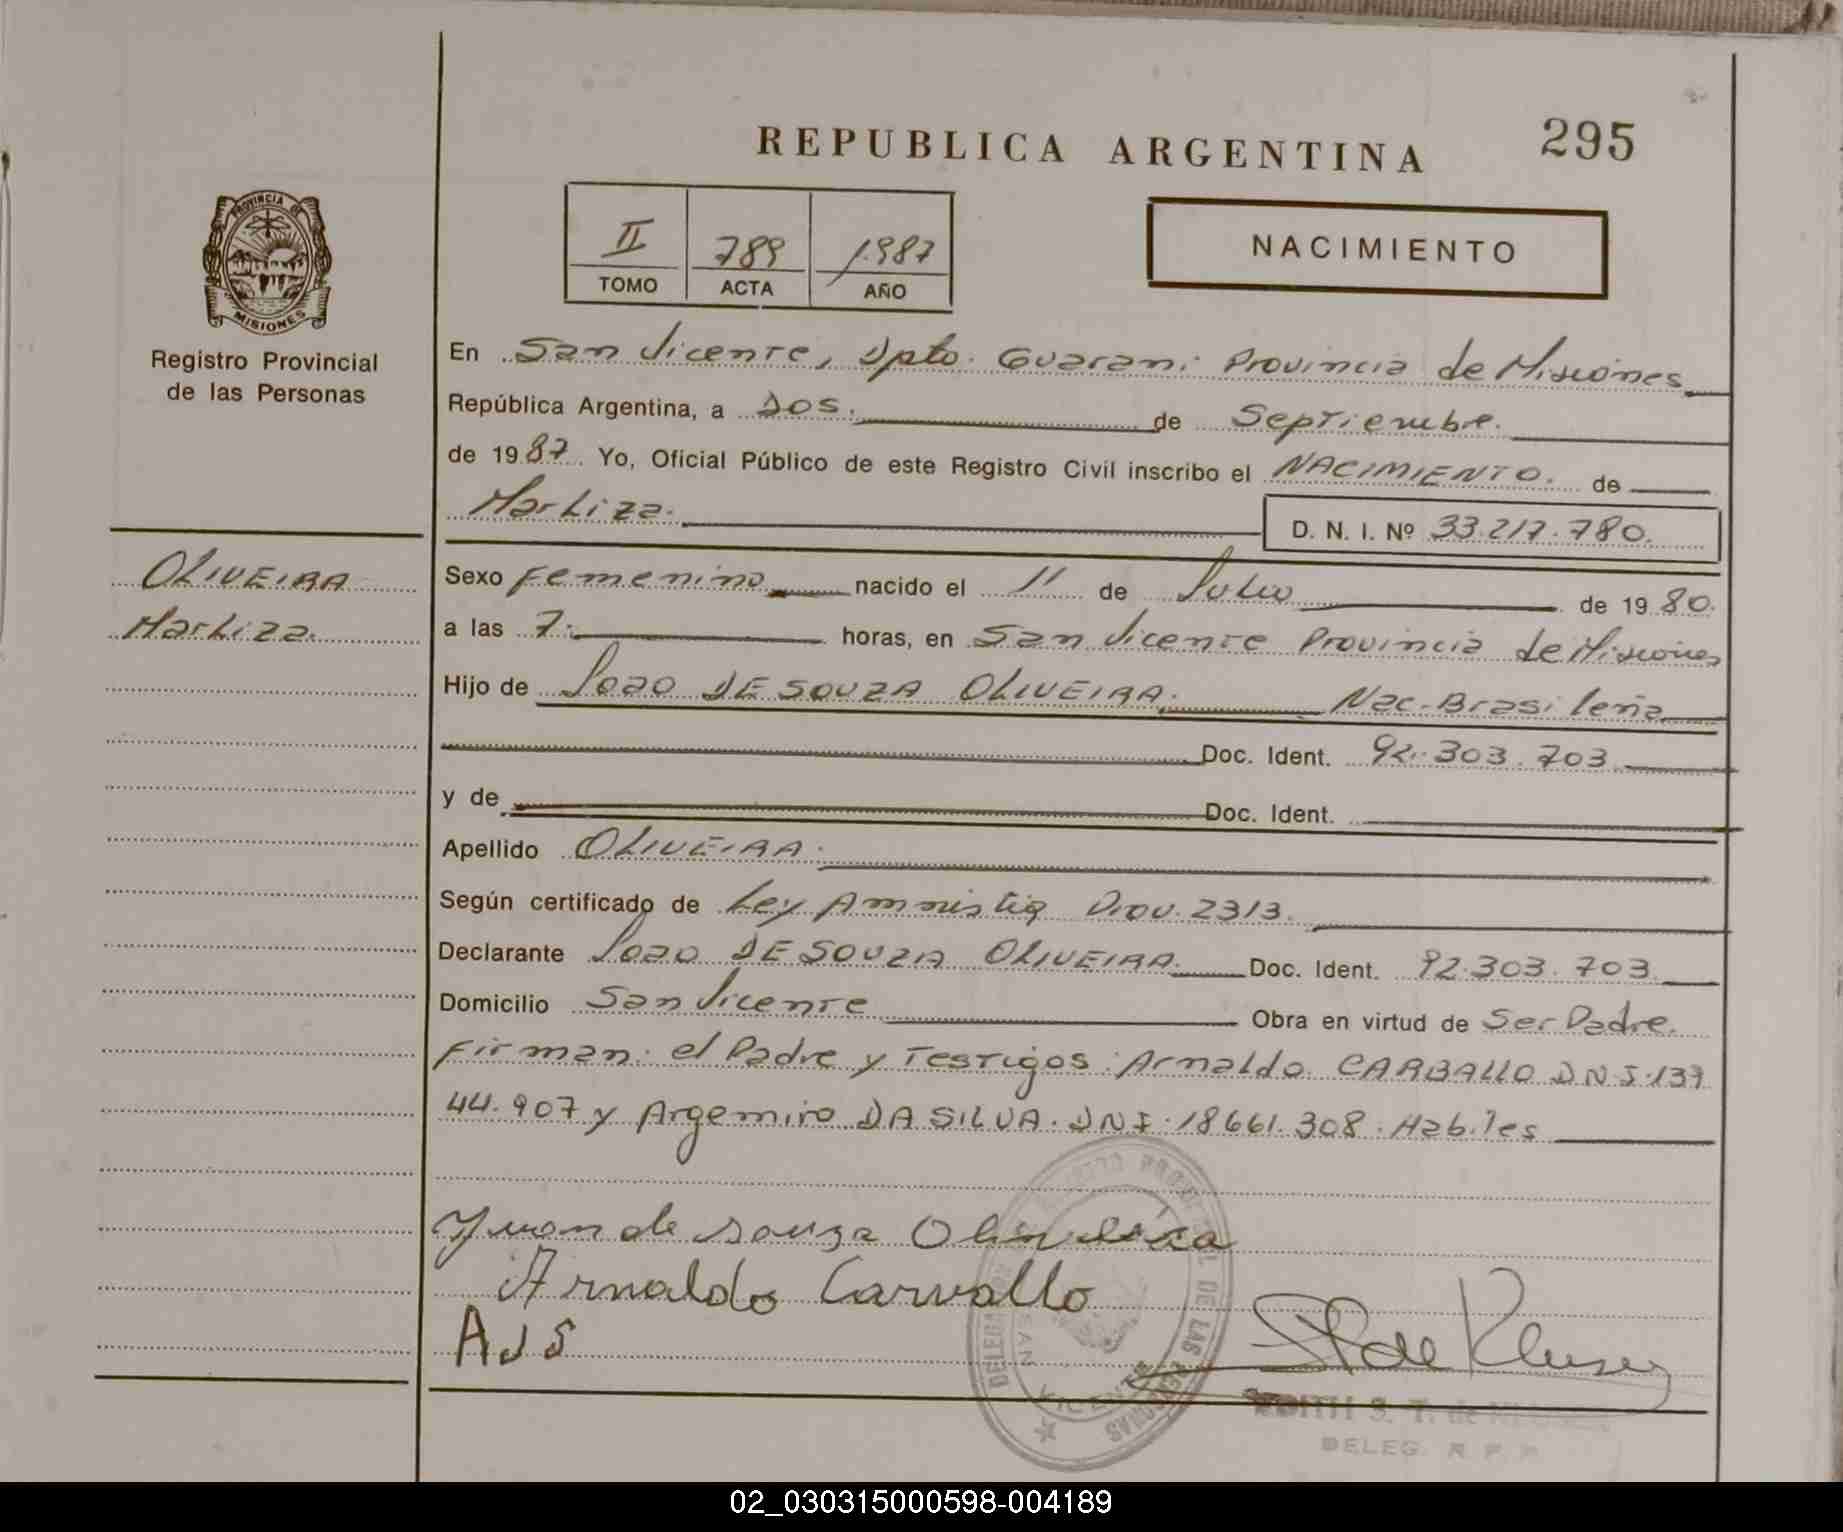 REPUBLICA ARGENTINA
295
PROVINCIA DE
MISIONES
Registro Provincial
de las Personas
II
TOMO
789
ACTA
1.987
AÑO
NACIMIENTO
En San Vicente, Dpto. Guarani Provincia de Misiones
República Argentina, a Dos. de Septiembre.
de 1987. Yo, Oficial Público de este Registro Civil inscribo el NACIMIENTO. de
Marliza.
D. N. I. Nº 33.217.780.
OLIVEIRA
Marliza.
Sexo Femenino nacido el 11 de Julio de 1980.
a las 7. horas, en San Vicente Provincia de Misiones
Hijo de Joao DE SOUZA OLIVEIRA. Nac. Brasileña
Doc. Ident. 92.303.703
y de Doc. Ident.
Apellido OLIVEIRA.
Según certificado de Ley Amnistia Prov. 2313.
Declarante Joao DE SOUZA OLIVEIRA. Doc. Ident. 92.303.703
Domicilio San Vicente Obra en virtud de Ser Padre.
Firman: el Padre y Testigos: Arnaldo CARBALLO DNI.139
44.907 y Argemiro DA SILVA. DNI. 18661.308. Habiles
Juan de Souza Oliveira
Arnaldo Carvallo
AJS
DELEG. R. P. P.
02_030315000598-004189